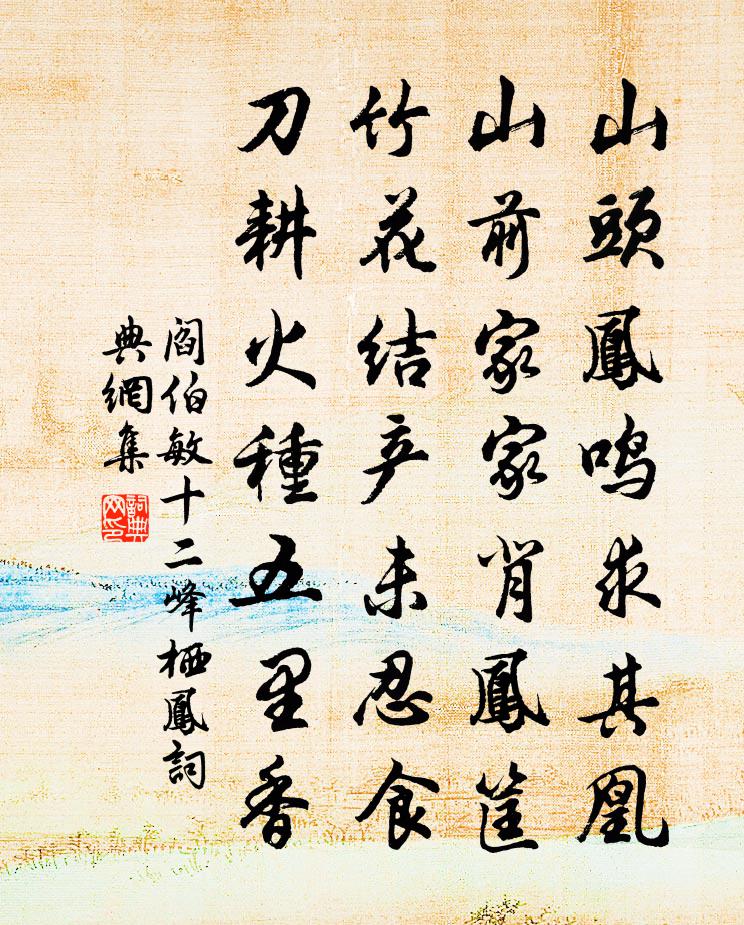 山頭鳳鳴求其凰
山前家家肖鳳篁
竹花结产未忍食
刀耕火種五里香
閻伯敏十二峰栖鳳詞
典網集
詞典网印